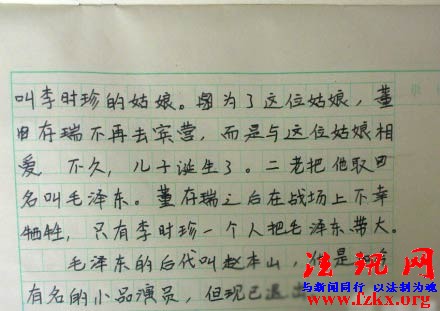 叫李时珍的姑娘。因为了这位姑娘，董
存瑞不再去宾营，而是与这位姑娘相
爱，不久，儿子诞生了。二老把他取
名叫毛泽东。董存瑞之后在战场上不幸
牺牲，只有李时珍一个人把毛泽东带大。
毛泽东的后代叫赵本山，他是
有名的小品演员，但现已退出
法讯网
与新闻同行 以法制为魂
www.fzkx.org